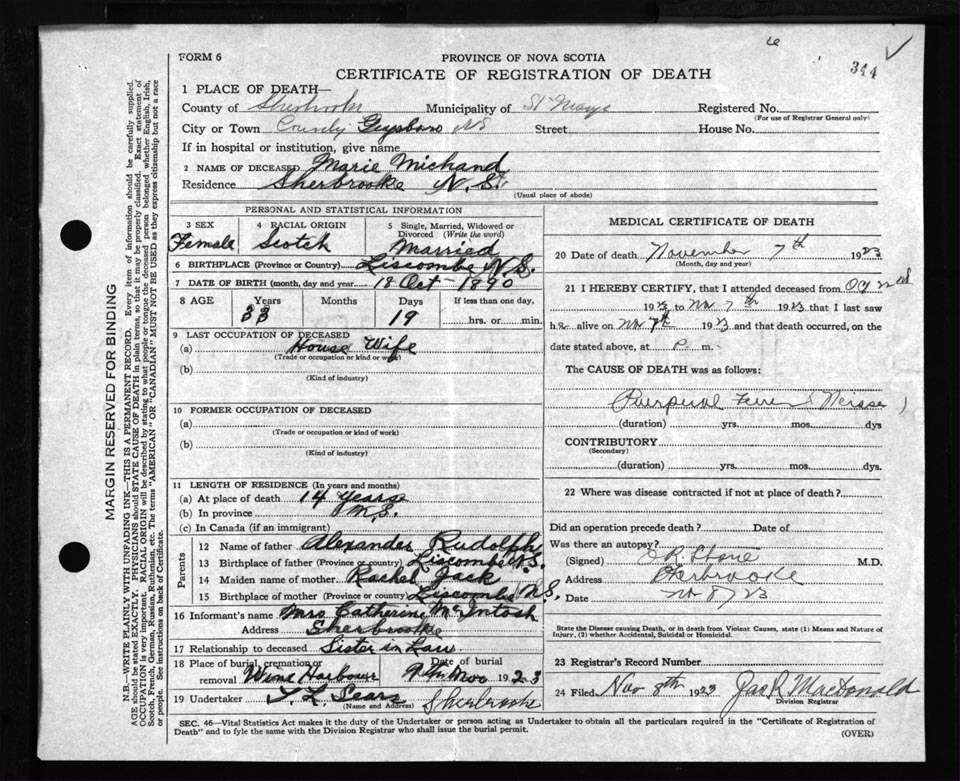 344
FORM 6
PROVINCE OF NOVA SCOTIA
CERTIFICATE OF REGISTRATION OF DEATH
1 PLACE OF DEATH—
County of Sherbrooke Municipality of St Marys Registered No.
(For use of Registrar General only)
City or Town County Guysboro NS Street House No.
If in hospital or institution, give name
2 NAME OF DECEASED Marie Michaud
Residence Sherbrooke N.S.
(Usual place of abode)
PERSONAL AND STATISTICAL INFORMATION
3 SEX 4 RACIAL ORIGIN 5 Single, Married, Widowed or Divorced (Write the word)
Female Scotch Married
6 BIRTHPLACE (Province or Country) Liscombe N.S.
7 DATE OF BIRTH (month, day and year) 18 Oct 1890
8 AGE Years Months Days If less than one day,
33 19 hrs. or min.
9 LAST OCCUPATION OF DECEASED
(a) House Wife
(Trade or occupation or kind of work)
(b)
(Kind of industry)
10 FORMER OCCUPATION OF DECEASED
(a)
(Trade or occupation or kind of work)
(b)
(Kind of industry)
11 LENGTH OF RESIDENCE (In years and months)
(a) At place of death 14 years
(b) In province N.S.
(c) In Canada (if an immigrant)
Parents
12 Name of father Alexander Rudolph
13 Birthplace of father (Province or Country) Liscombe N.S.
14 Maiden name of mother Rachel Jack
15 Birthplace of mother (Province or Country) Liscombe N.S.
16 Informant's name Mrs Catherine McIntosh
Address Sherbrooke
17 Relationship to deceased Sister in Law
18 Place of burial, cremation or removal Wine Harbour Date of burial 9th Nov 1923
19 Undertaker T. L. Sears Sherbrooke
(Name and Address)
MEDICAL CERTIFICATE OF DEATH
20 Date of death November 7th 1923
(Month, day and year)
21 I HEREBY CERTIFY, that I attended deceased from Oct 22nd
1923 to Nov 7th 1923 that I last saw
her alive on Nov 7th 1923 and that death occurred, on the
date stated above, at P m.
The CAUSE OF DEATH was as follows:
Puerperal Fever
(duration) yrs. mos. dys
CONTRIBUTORY
(Secondary)
(duration) yrs. mos. dys.
22 Where was disease contracted if not at place of death?
Did an operation precede death? Date of
Was there an autopsy?
(Signed) M.D.
Address Sherbrooke
Date Nov 8/23
State the Disease causing Death, or in death from Violent Causes, state (1) Means and Nature of
Injury, (2) whether Accidental, Suicidal or Homicidal.
23 Registrar's Record Number
24 Filed Nov 8th 1923 Jas R MacDonald
Division Registrar
SEC. 46—Vital Statistics Act makes it the duty of the Undertaker or person acting as Undertaker to obtain all the particulars required in the "Certificate of Registration of
Death" and to fyle the same with the Division Registrar who shall issue the burial permit.
(OVER)
MARGIN RESERVED FOR BINDING
N.B.—WRITE PLAINLY WITH UNFADING INK—THIS IS A PERMANENT RECORD. Every item of information should be carefully supplied.
AGE should be stated EXACTLY. PHYSICIANS should STATE CAUSE OF DEATH in plain terms, so that it may be properly classified. Exact statement of
OCCUPATION is very important. RACIAL ORIGIN will be described by stating to what people or tongue the deceased person belonged whether English, Irish,
Scotch, French, German, Russian, Ruthenian, etc. The terms "AMERICAN" OR "CANADIAN" MUST NOT BE USED as they express citizenship but not a race
or people. See instructions on back of Certificate.